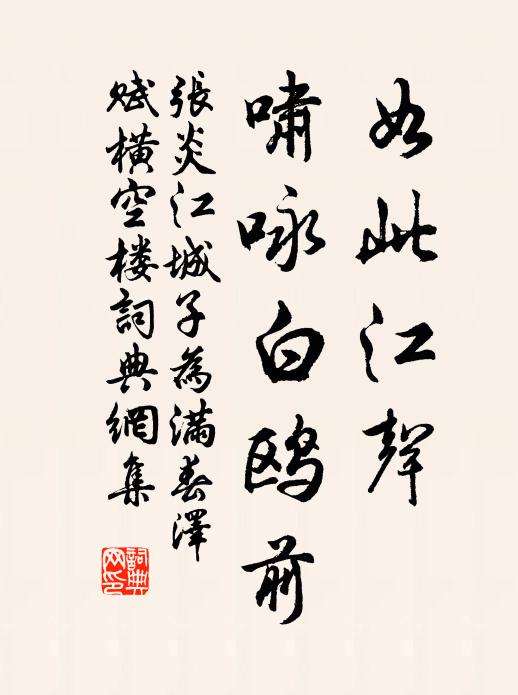 如此江聲
嘯咏白鷗前
張炎江城子為滿春澤
賦橫空楼詞典網集
詞典
网印